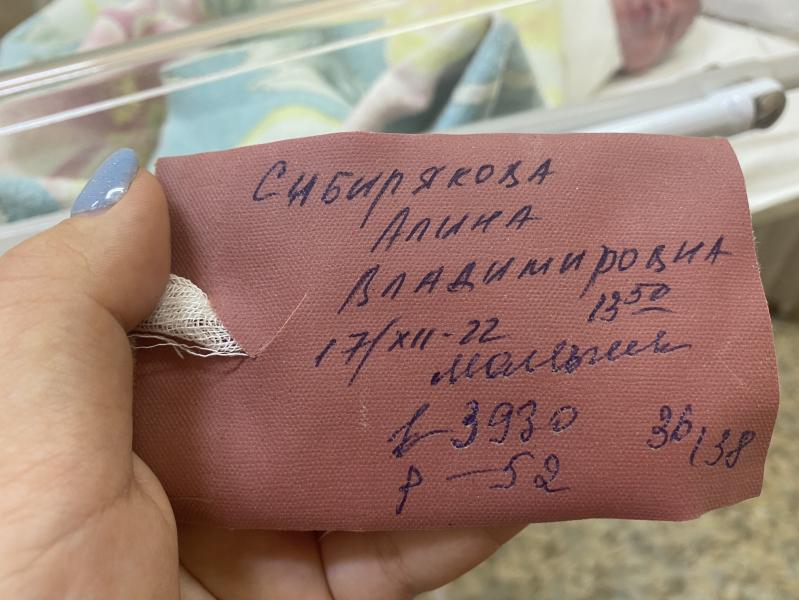 Сибирякова
Алина
Владимировна
17/XII-22 13 50
мальчик
в 3930 36/38
р – 52